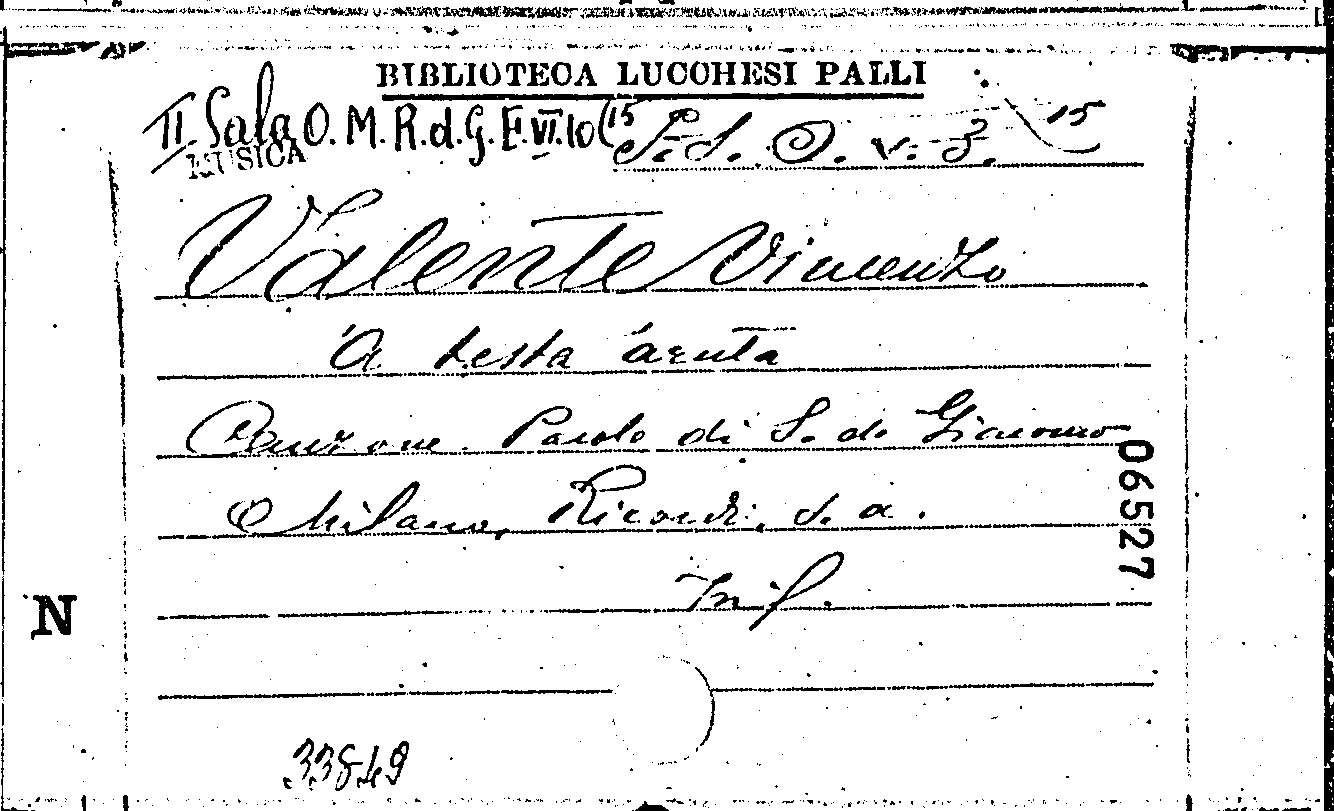 BIBLIOTECA LUCCHESI PALLI
II Sala O. M. R.d.G.E.VI.10(15
MUSICA
v. 3. 15
Valente Vincenzo
'A testa aruta
Canzone. Parole di S. di Giacomo
Milano, Ricordi, s. a.
06527
N
33849